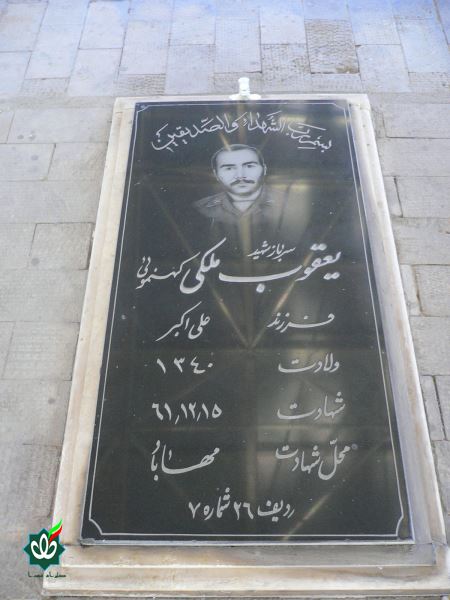 بسم رب الشهداء و الصدیقین
سرباز شهید
یعقوب ملکی کهنمویی
فرزند علی اکبر
ولادت ۱۳۴۰
شهادت ۶۱٫۱۲٫۱۵
محلّ شهادت مهاباد
ردیف ۲۶ شماره ۷